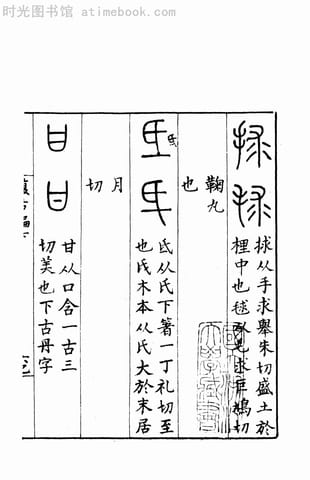 时光图书馆 atimebook.com
捄从手求舉朱切盛土於
梩中也毬从毛求巨鳩切
鞠丸
也
氐从氏下箸一丁礼切至
也氏木本从氏大於末居
月
切
甘从口含一古三
切美也下古丹字